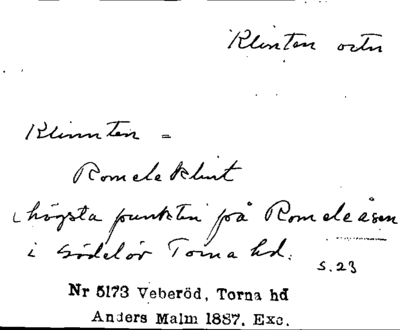 Klinten ortn
Klinnten =
Romeleklint
högsta punkten på Romeleåsen
i Torna hd.
s. 23
Nr 5173 Veberöd, Torna hd
Anders Malm 1887. Exc.